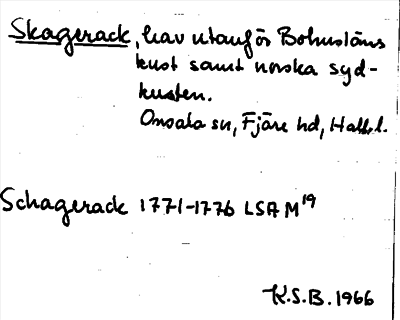 Skagerack, hav utanför Bohusläns
kust samt norska syd-
kusten.
Onsala sn, Fjäre hd, Hall. l.
Schagerack 1771-1776 LSA M19
K.S.B. 1966